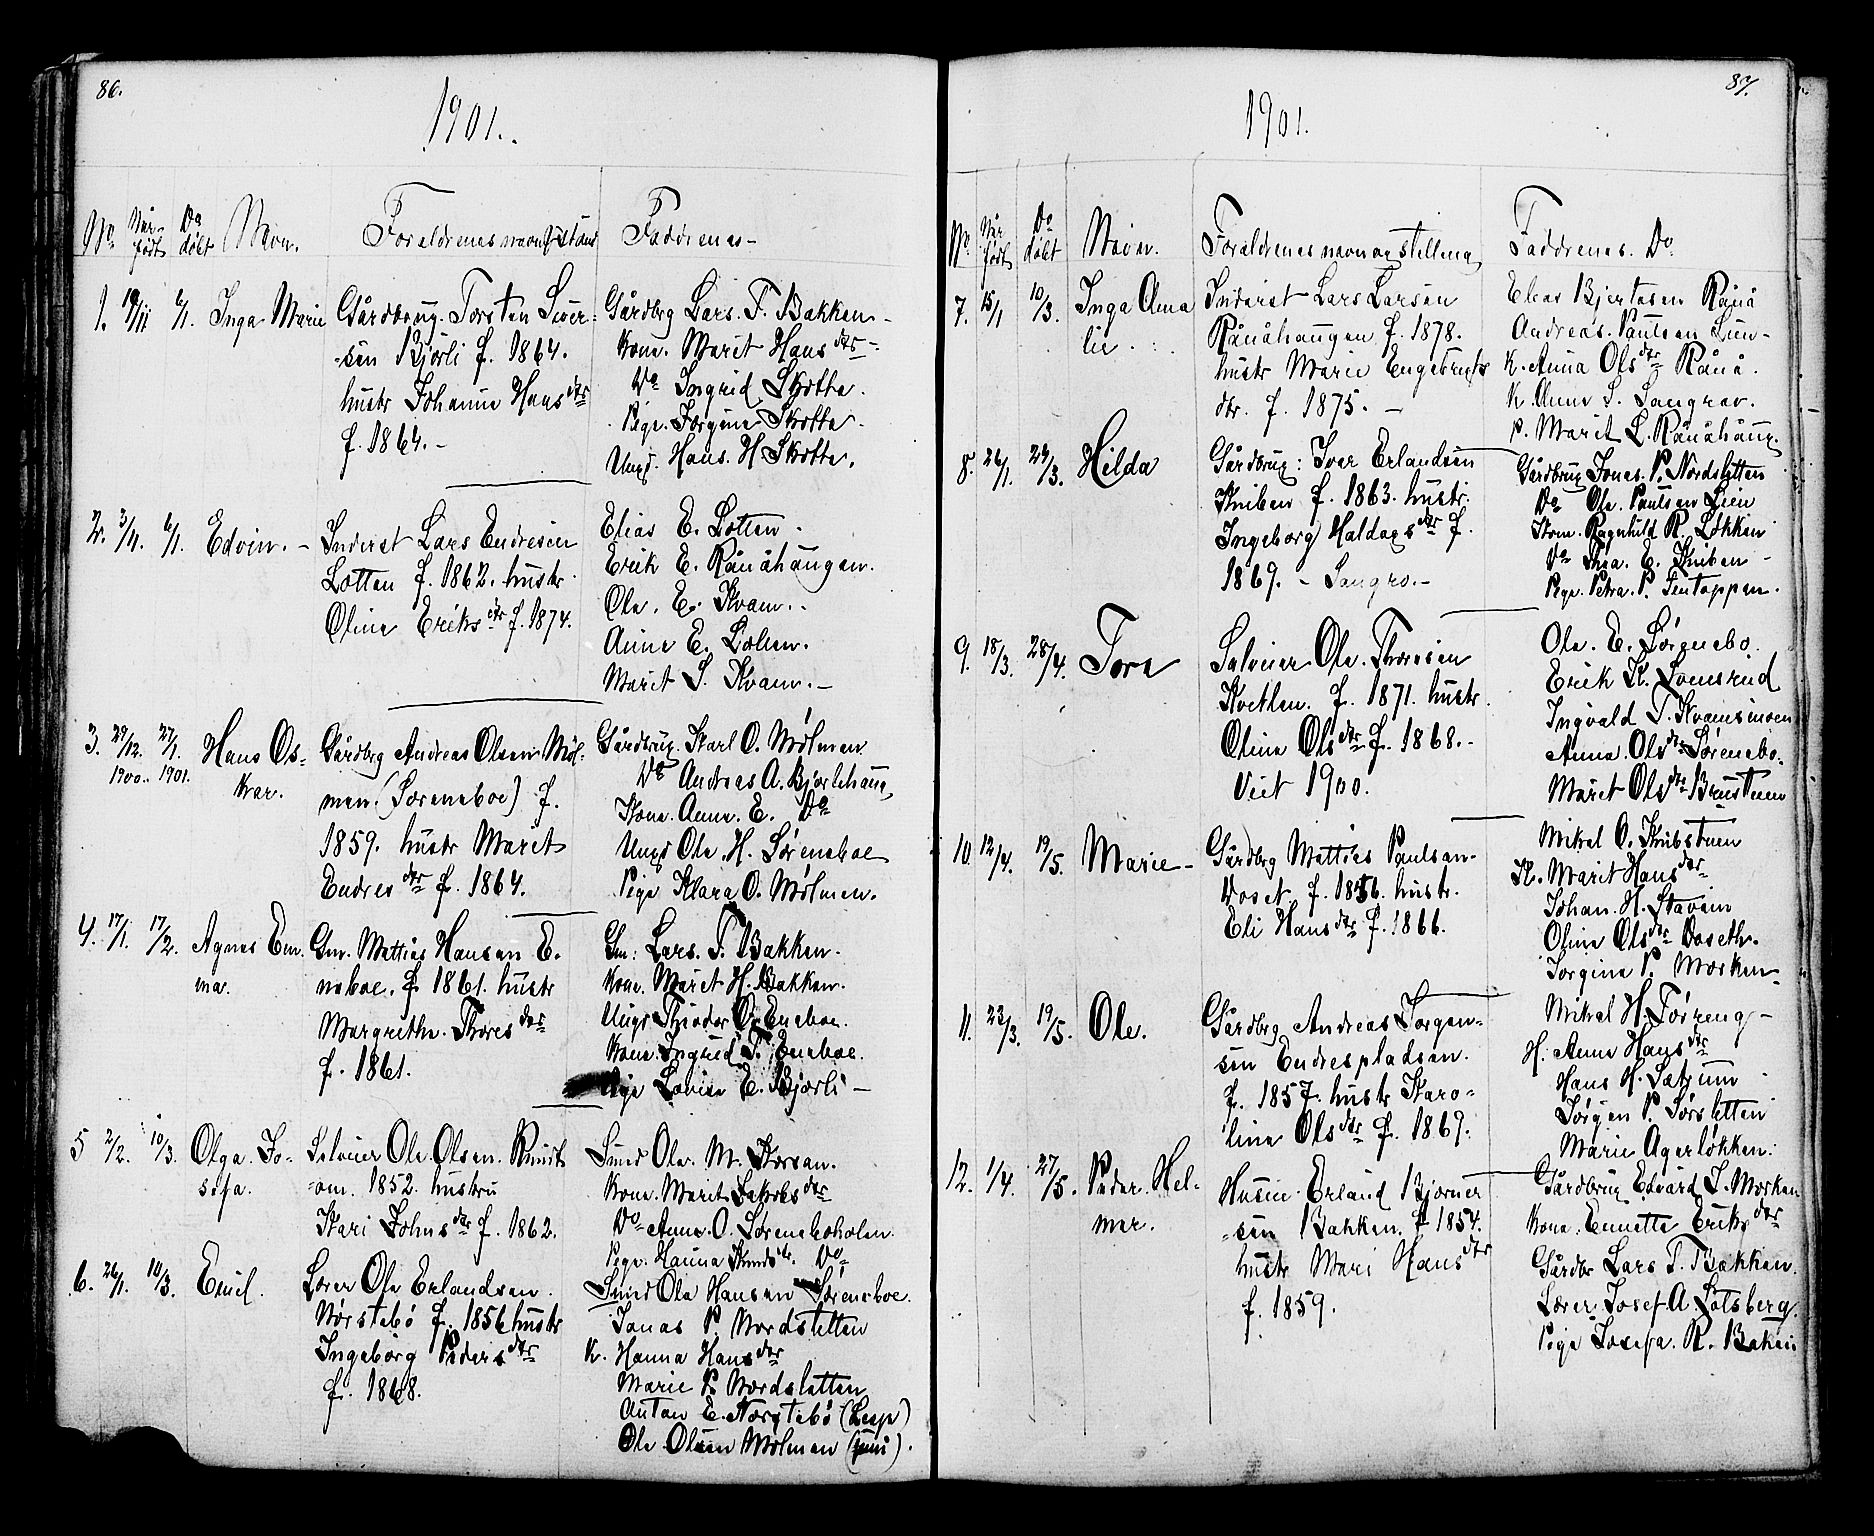 86.
1901.
No. Når født Do døbt Navn. Forældrenes navn & stand Faddrenes-
1. 19/11 6/1. Inga Marie
Gårdbrug. Torsten Siver-
sen Bjorli f. 1864.
hustr Johanne Hansdtr
f. 1864.-
Gårdbrg Lars. T. Bakken-
kone. Marit Hansdtr-
Do Ingrid Skotte.
Pige. Jørgine Skotte.
Ungk. Hans. H. Skotte.
2. 3/11. 6/1. Edvin.-
Inderst Lars Endresen
Lotten f. 1862. hustr
Oline Eriksdtr f. 1874.
Elias E. Lotten.
Erik E. Rånåhaugen.
Ole. E. Kvam.
Anne E. Lotten.
Marit S. Kvam.-
3. 29/12. 27/1. Hans Os-
1900. 1901. kar.
Gårdbrg Andreas Olsen Møl-
men. (Sørenboe) f.
1859. hustr Marit
Endresdtr f. 1864.
Gårdbrug. Karl O. Mølmen.
Do Andreas A. Bjorlihaug
Kone. Anne. E. Do
Ungk Ole. H. Sørenboe
Pige Klara O. Mølmen.
4. 17/1. 17/2. Agnes Em-
ma.
Gm. Mattias Hansen E-
neboe. f. 1861. hustr
Margrethe. Thoresdtr
f. 1861.
Gm: Lars. T. Bakken.
kone. Marit H. Bakken.
Ungk Theodor O. Eneboe.
Kone. Ingrid T. Eneboe.
Pige Lovise E. Bjorli-
5 2/2. 10/3. Olga. Jo-
sefa.
Selveier Ole Olsen. Rund-
om. 1852. hustru
Kari Johnsdtr f. 1862.
Smed Ole. M. Korsan.
kone. Marit Jakobsdtr
Do Anne. O. Sørenboholen.
Pige. Hanna Knudsdtr. Do
6. 26/1. 10/3. Emil.
Lærer Ole Erlandsen.
Nørstebø f. 1856 hustr
Ingeborg Pedersdtr
f. 1868.
Smed Ole Hansen Sørenboe.
Jonas P. Nordsletten
K. Hanna Hansdtr
Marie P. Nordsletten
Anton E. Nørstebø (Lesje)
Ole Olsen Mølmen (juni).
87.
1901.
No. Når født Do døbt Navn. Forældrenes navn og stilling Faddrenes. Do
7. 15/1 10/3. Inga Ama
lie.
Inderst Lars Larsen
Rånåhaugen f. 1878.
hustr Marie Engebregts
dtr. f. 1875.-
Elias Bjertesen Rånå
Andreas. Paulsen Lun-
K. Anna Olsdtr Rånå.
K. Anne S. Sangrov.
P. Marit L. Rånåhaug.
8. 26/1. 24/3. Hilda
Gårdbrug: Iver Erlandsen
Kniben f. 1863. hustr.
Ingeborg Haldogsdtr f.
1869. - Sangro.-
Gårdbrug Jonas. P. Nordsletten
Do Ole. Paulsen Lien
Kone. Ragnhild R. Løkken
Do Thea. E. Kniben-
Pige. Petra. P. Tentappen.
9. 18/3. 28/4. Tora
Selveier Ole. Thoresen
Kvetlen. f. 1871. hustr.
Oline Olsdtr f. 1868.-
Viet 1900.
Ole. E. Sørenebo.
Erik K. Svensrud
Ingvald T. Kvamsmoen
Anna. Olsdtr Sørenebo.
Marit Olsdtr Brustuen
10 12/4. 19/5. Marie-
Gårdbrg Mattias Paulsen-
Voset. f. 1856. hustr.
Eli Hansdtr f. 1866.
Mikal O. Knibstuen
K. Marit Hansdtr
Johan. H. Stavem
Oline Olsdtr Voseth.
Jørgine P. Morken-
11. 23/3. 19/5. Ole.
Gårdbrg Andreas Jørgen-
sen Endrespladsen.
f. 1857. hustr Karo-
line Olsdtr f. 1867.
Mikal H. Tørreng-
H. Anne Hansdtr
Hans H. Sætrum
Jørgen P. Sørsletten
Marie Agerløkken.
12. 1/4. 27/5. Peder. Hel-
mer.
Husm. Erland Bjørner
sen Bakken. f 1854.
hustr Mari Hansdtr
f. 1859.
Gårdbrug Edvard J. Morken
kone. Ennette Eriksdtr
Gårdbr Lars T. Bakken.
Lærer. Josef A. Løtsberg.
Pige Josefa. R. Bakken